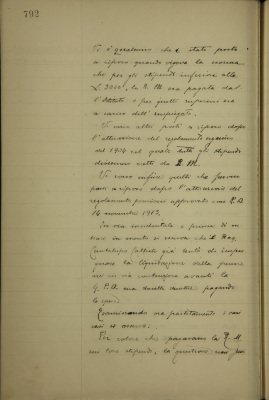 792
Vi è qualcuno che è stato posto
a riposo quando vigeva la norma
che per gli stipendi inferiori alle
L. 3000, la R. M. era pagata dal
l'Istituto e per quelli superiori era
a carico dell'impiegato.
Vi sono altri posti a riposo dopo
l'attuazione del regolamento
del 1904 nel quale tutti gli stipendi
divennero netti da R. M.
Vi sono infine quelli che furono
posti a riposo dopo l'attuazione del
regolamento pensioni approvato con R. D.
14 novembre 1912.
In via incidentale e prima di
in merito si osserva che il Rag.
già
la liquidazione della pensione
ne in via contenziosa avanti la
G. P. A. ma dovette pagando
le spese.
Esaminando ora partitamente i vari
casi si osserva:
Per coloro che pagavano la R. M.
sui loro stipendi, la questione non può